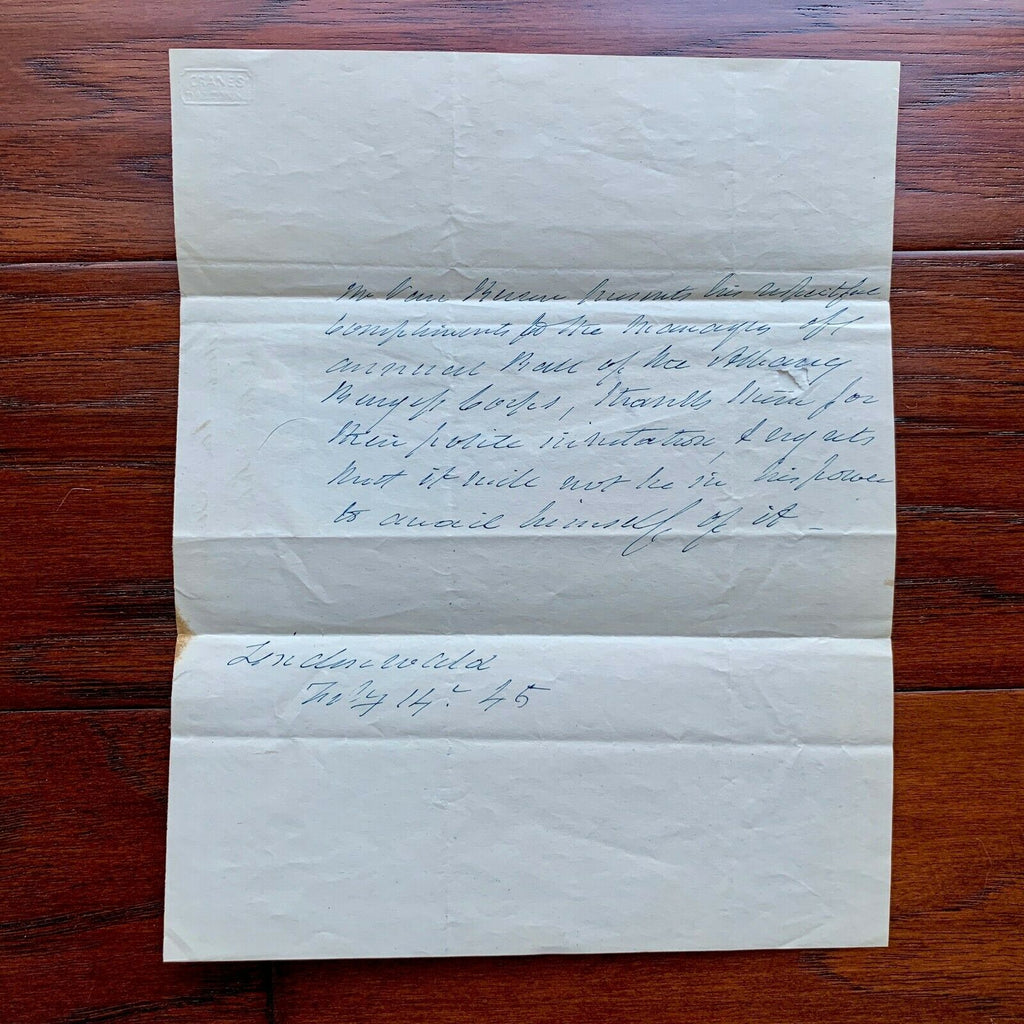 CRANE'S
DALTON
Mr Van Buren presents his respectful
compliments to the Managers of
annual Ball of the Albany
Burgess Corps, thanks them for
their polite invitation, & regrets
that it will not be in his power
to avail himself of it –
Lindenwald
Feby 14. 45